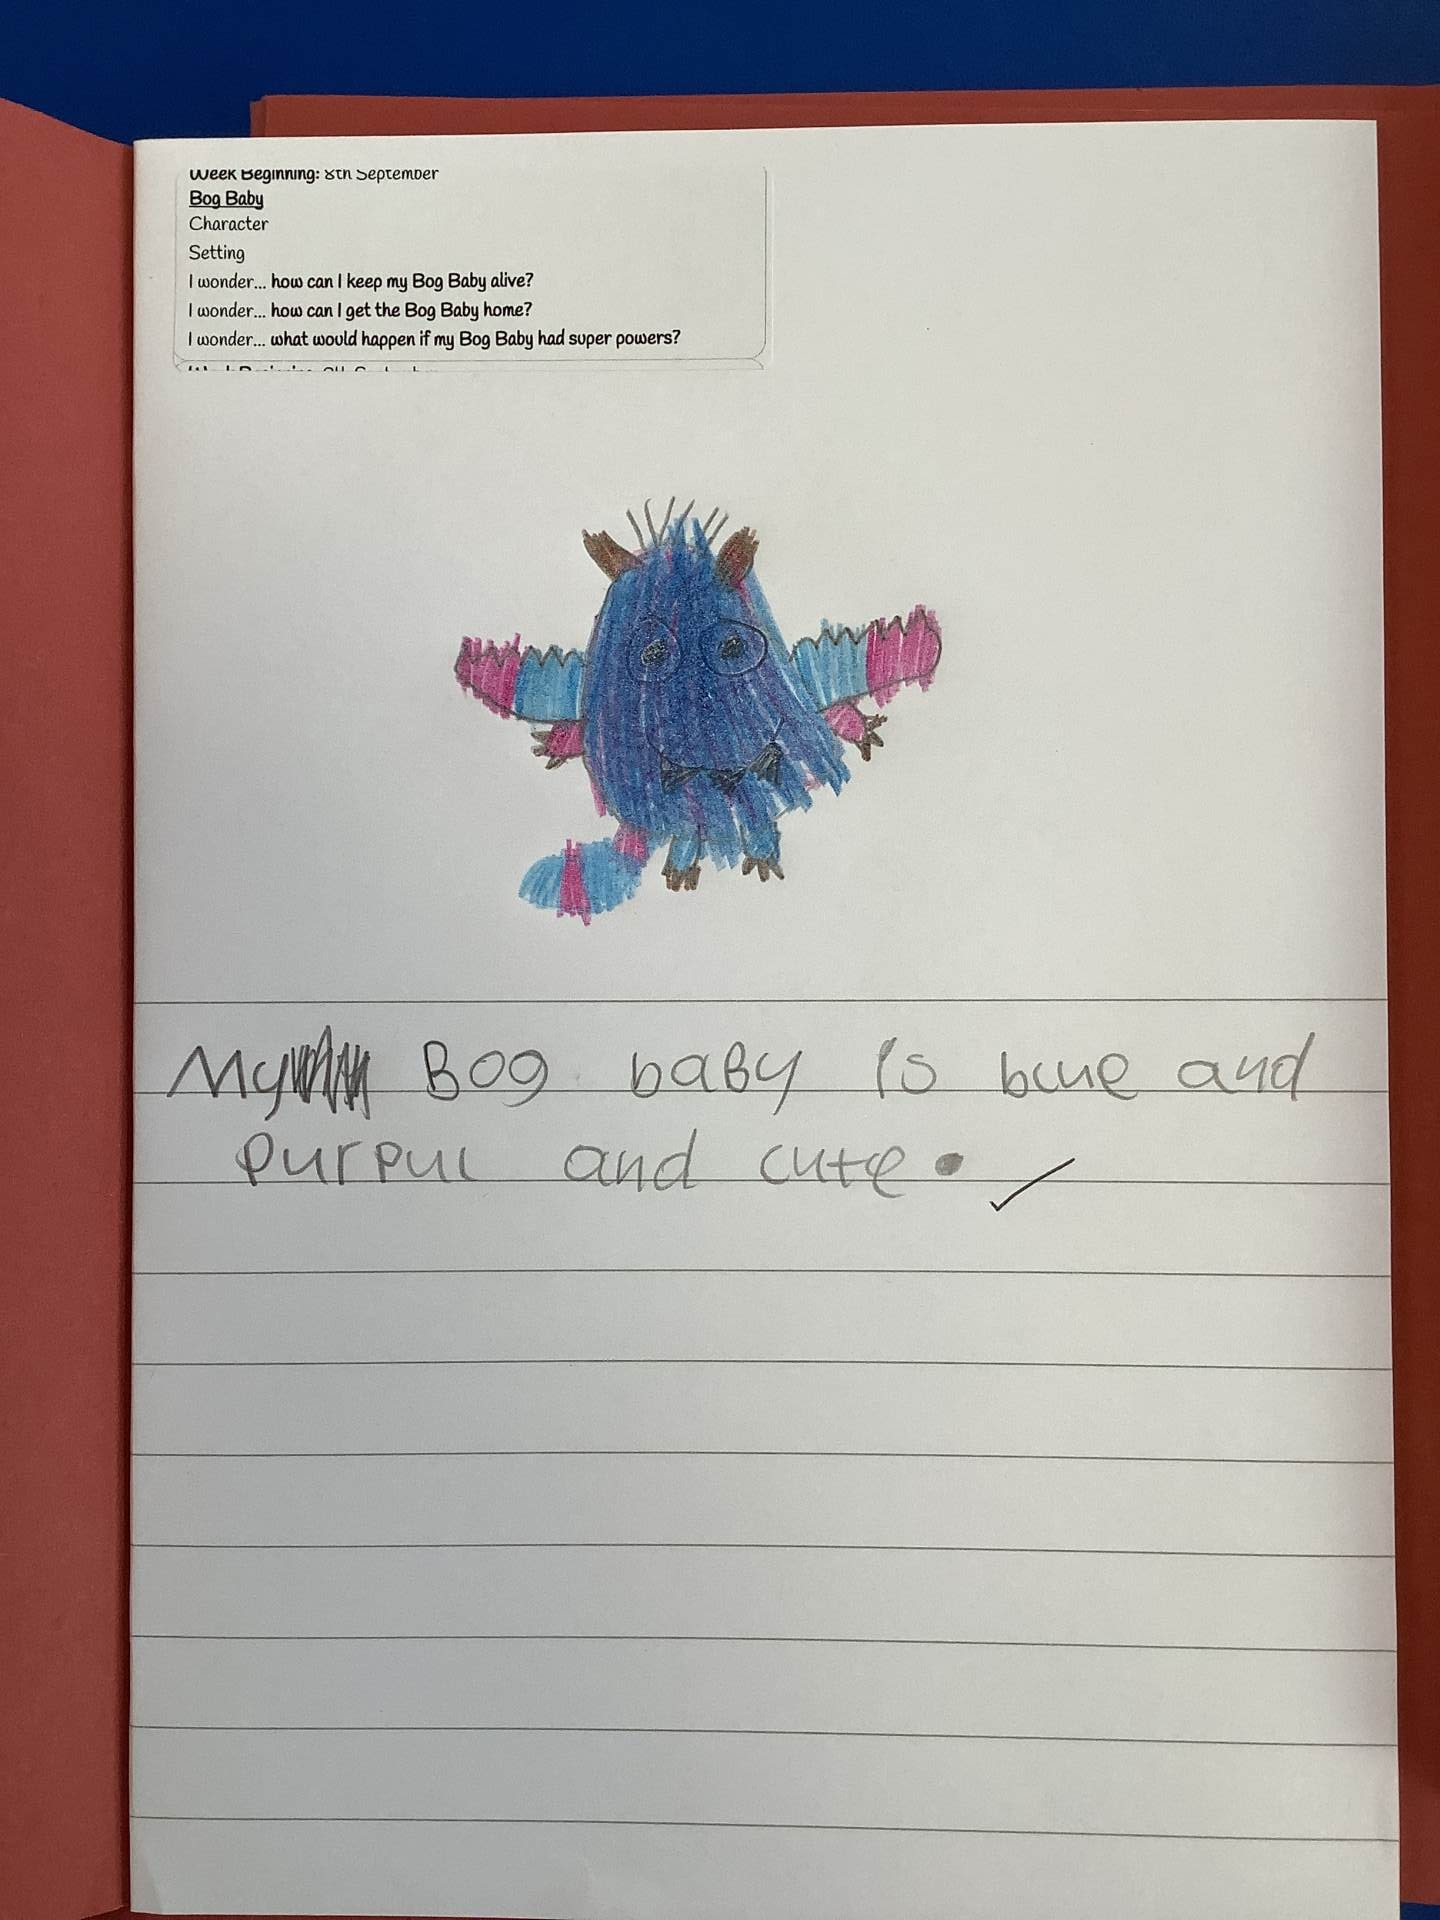 Week Beginning: 8th September
Bog Baby
Character
Setting
I wonder... how can I keep my Bog Baby alive?
I wonder... how can I get the Bog Baby home?
I wonder... what would happen if my Bog Baby had super powers?
My Bog baby is blue and
purpul and cute.